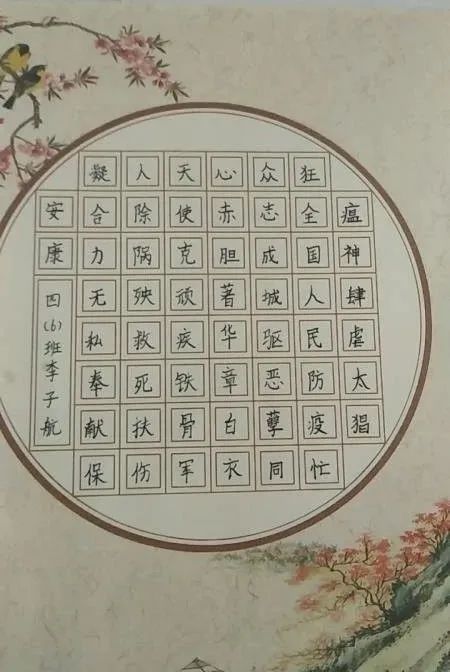 瘟神肆虐太猖
狂全国人民防疫忙
众志成城驱恶孽同
心赤胆著华章白衣
天使克顽疾铁骨军
人除祸殃救死扶伤
凝合力无私奉献保
安康
四(6)班李子航